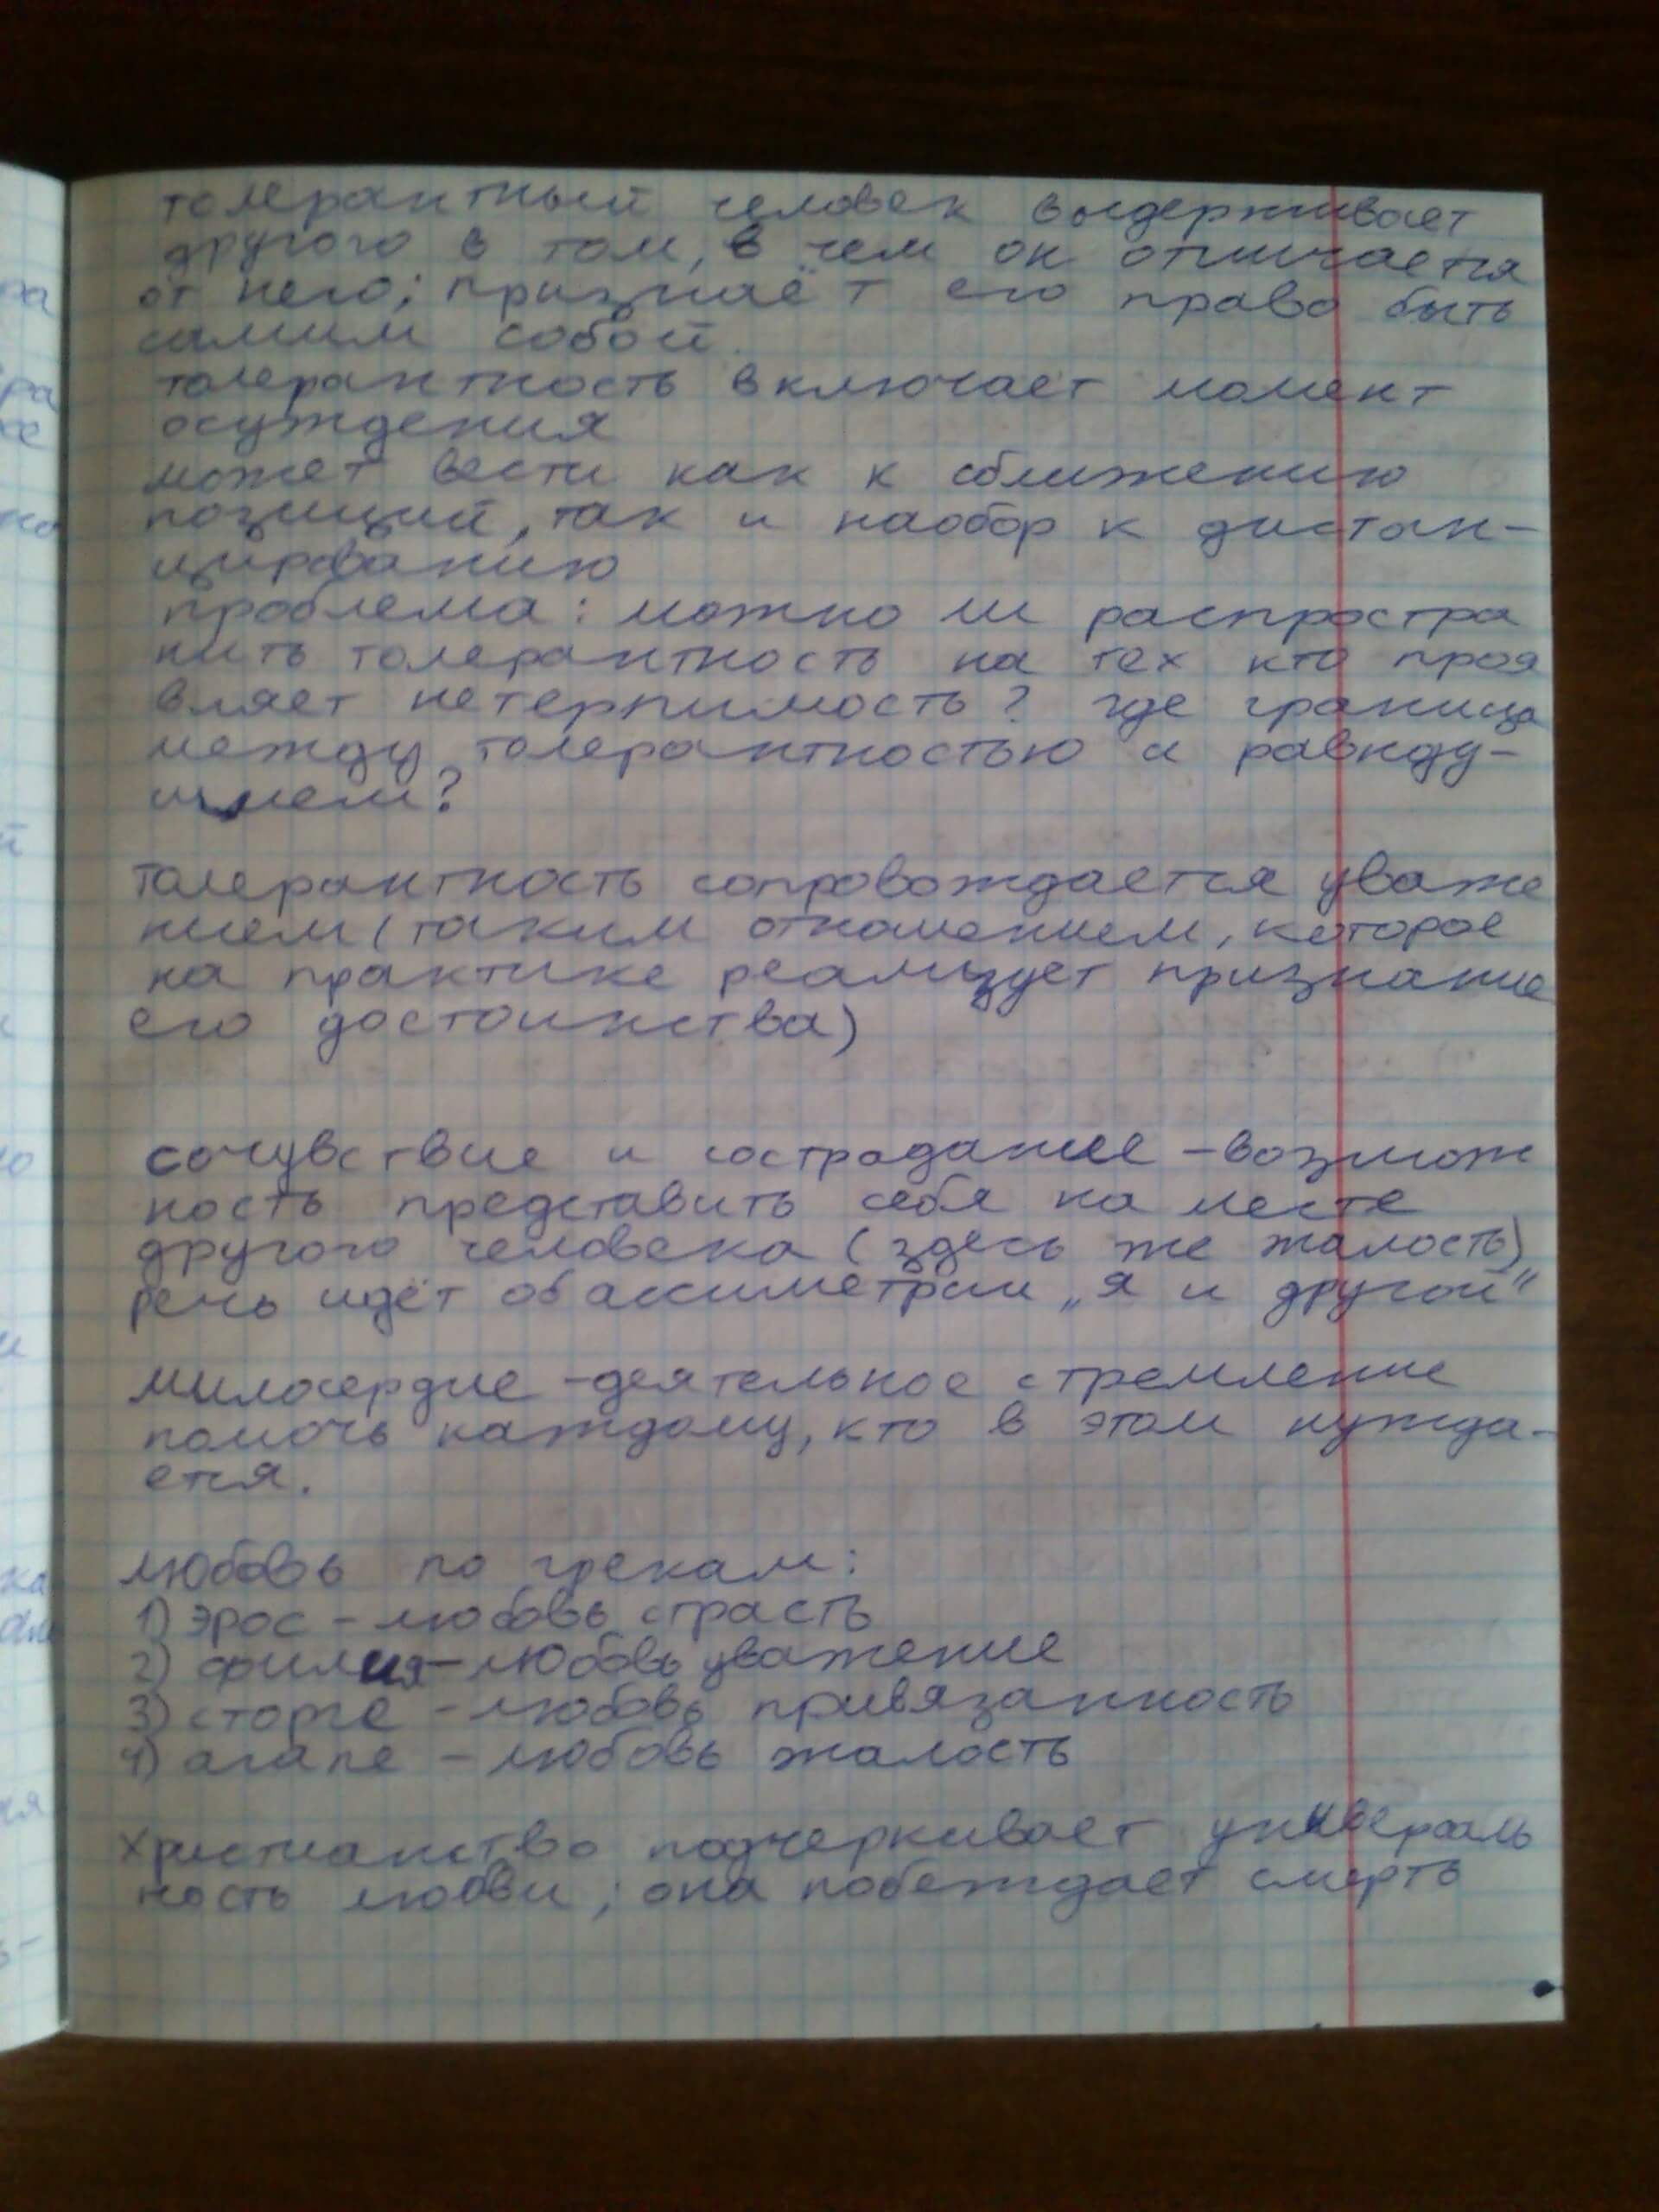 толерантный человек выдерживает
другого в том, в чем он отличается
от него; признаёт его право быть
самим собой.
толерантность включает момент
осуждения
может вести как к сближению
позиций, так и наобор к дистан-
цированию
проблема: можно ли распростра
нить толерантность на тех кто проя
вляет нетерпимость? где граница
между толерантностью и равноду-
шием?
Толерантность сопровождается уваже
нием (таким отношением, которое
на практике реализует признание
его достоинства)
сочувствие и сострадание - возмож
ность представить себя на месте
другого человека (здесь же жалость)
речь идёт об ассиметрии „я и другой"
милосердие - деятельное стремление
помочь каждому, кто в этом нужда-
ется.
любовь по грекам:
1) эрос - любовь страсть
2) филия - любовь уважение
3) сторге - любовь привязанность
4) агапе - любовь жалость
Христианство подчеркивает универсаль
ность любви; она побеждает смерть